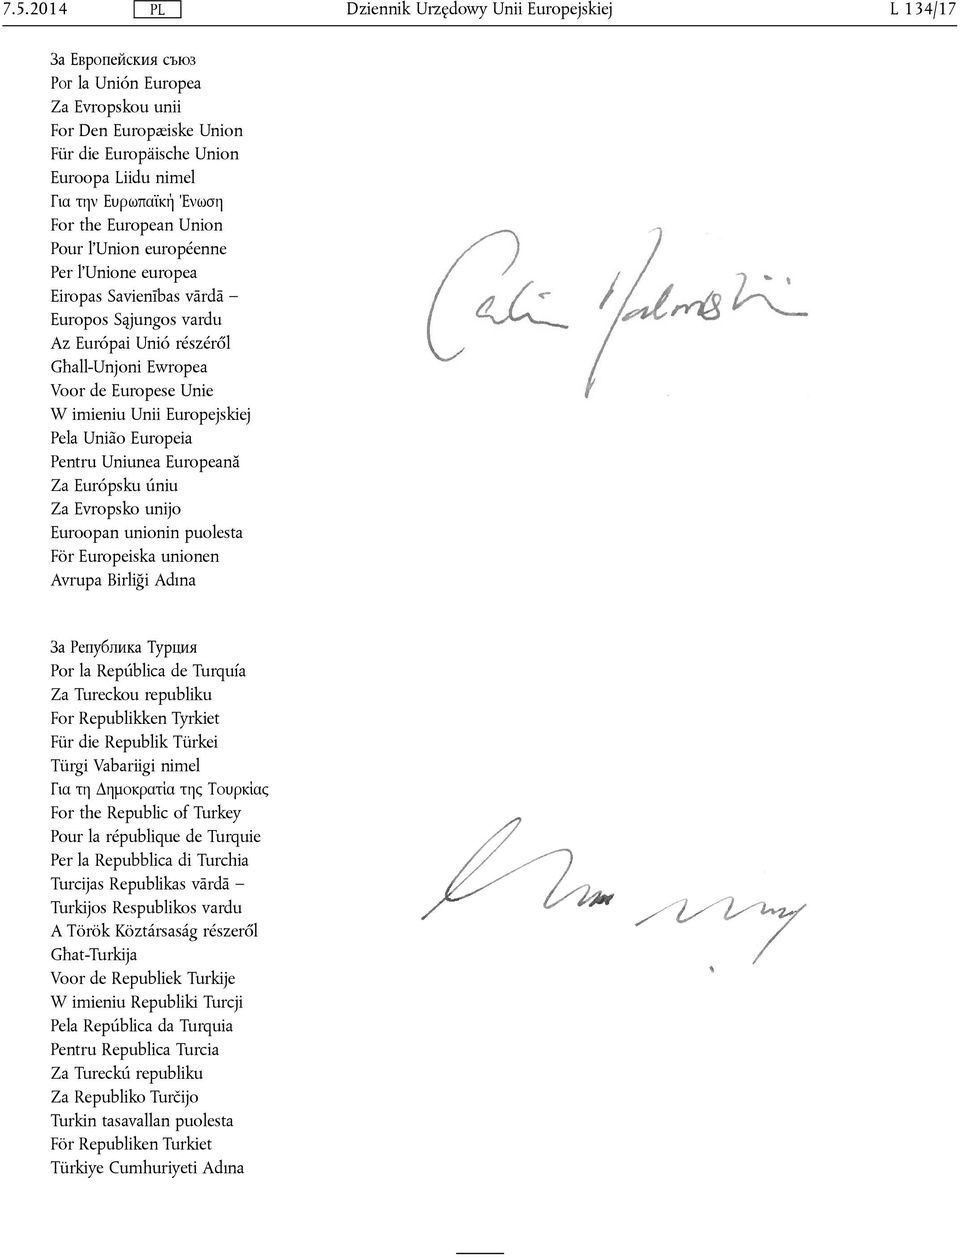 7.5.2014 PL Dziennik Urzędowy Unii Europejskiej L 134/17
За Европейския съюз
Por la Unión Europea
Za Evropskou unii
For Den Europæiske Union
Für die Europäische Union
Euroopa Liidu nimel
Για την Ευρωπαϊκή Ένωση
For the European Union
Pour l'Union européenne
Per l'Unione europea
Eiropas Savienības vārdā –
Europos Sąjungos vardu
Az Európai Unió részéről
Għall-Unjoni Ewropea
Voor de Europese Unie
W imieniu Unii Europejskiej
Pela União Europeia
Pentru Uniunea Europeană
Za Európsku úniu
Za Evropsko unijo
Euroopan unionin puolesta
För Europeiska unionen
Avrupa Birliği Adına
За Република Турция
Por la República de Turquía
Za Tureckou republiku
For Republikken Tyrkiet
Für die Republik Türkei
Türgi Vabariigi nimel
Για τη Δημοκρατία της Τουρκίας
For the Republic of Turkey
Pour la république de Turquie
Per la Repubblica di Turchia
Turcijas Republikas vārdā –
Turkijos Respublikos vardu
A Török Köztársaság részeről
Għat-Turkija
Voor de Republiek Turkije
W imieniu Republiki Turcji
Pela República da Turquia
Pentru Republica Turcia
Za Tureckú republiku
Za Republiko Turčijo
Turkin tasavallan puolesta
För Republiken Turkiet
Türkiye Cumhuriyeti Adına